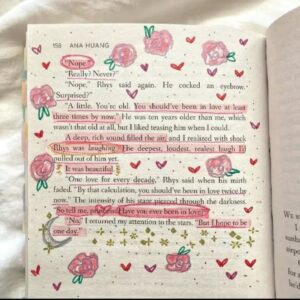 158 ANA HUANG
"Nope."
"Really? Never?"
"Nope." Rhys again. He cocked an eyebrow.
"Surprised?"
"A little. You're old. You should've been in love at least
three times by now." He was ten years older than me, which
wasn't that old at all, but I liked teasing him when I could.
A deep, rich sound filled the air, and I realized with shock
Rhys was laughing. The deepest, loudest, realest laugh I'd
pulled out of him yet.
It was beautiful.
"One love for every decade," Rhys said when his mirth
faded. "By that calculation, you should've been in love twice by
now." The intensity of his stare pierced through the darkness.
"So tell me, Have you ever been in love?"
"No." I returned my attention to the stars. "But I hope to be
one day."